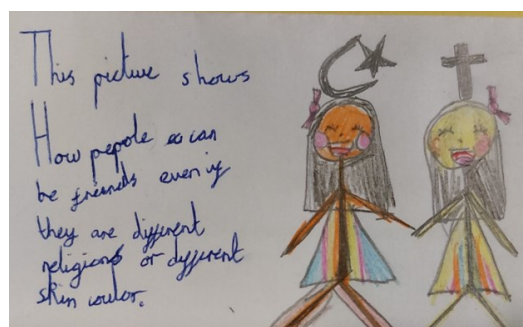 This picture shows
How pepole can
be friends even if
they are different
religions or different
skin coulor.